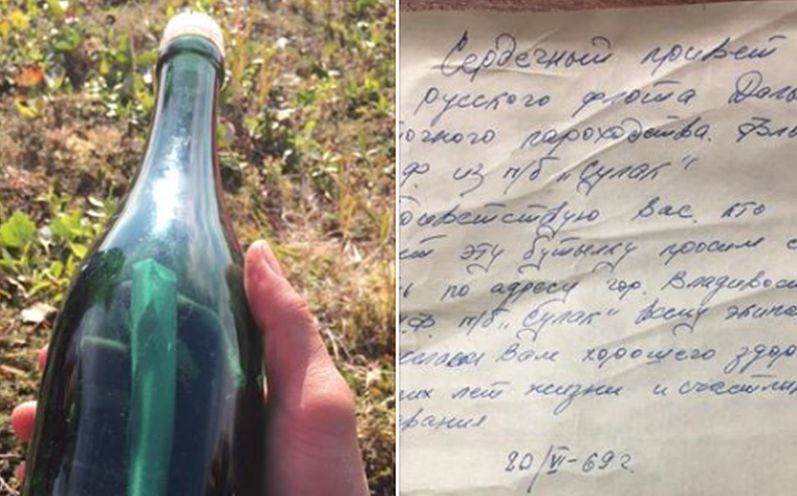 Сердечный привет
русского флота Даль
точного пароходства.
ф. из п/б „Сулак“
вас кто
ет эту бутылку просим с
ь по адресу гор. Владивос
п/б „Сулак“ всему экипа
Вам хорошего здор
их лет жизни и счастли
20/VI-69 г.